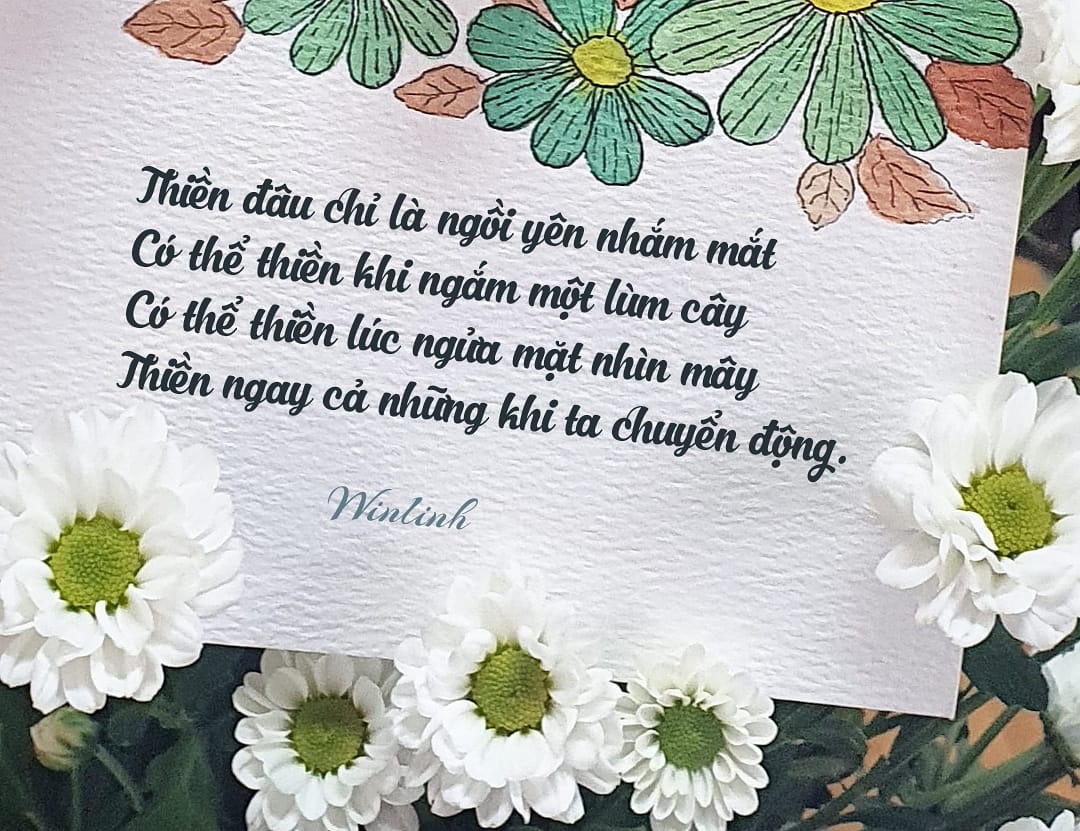 Thiền đâu chỉ là ngồi yên nhắm mắt
Có thể thiền khi ngắm một lùm cây
Có thể thiền lúc ngửa mặt nhìn mây
Thiền ngay cả những khi ta chuyển động.
Winlinh